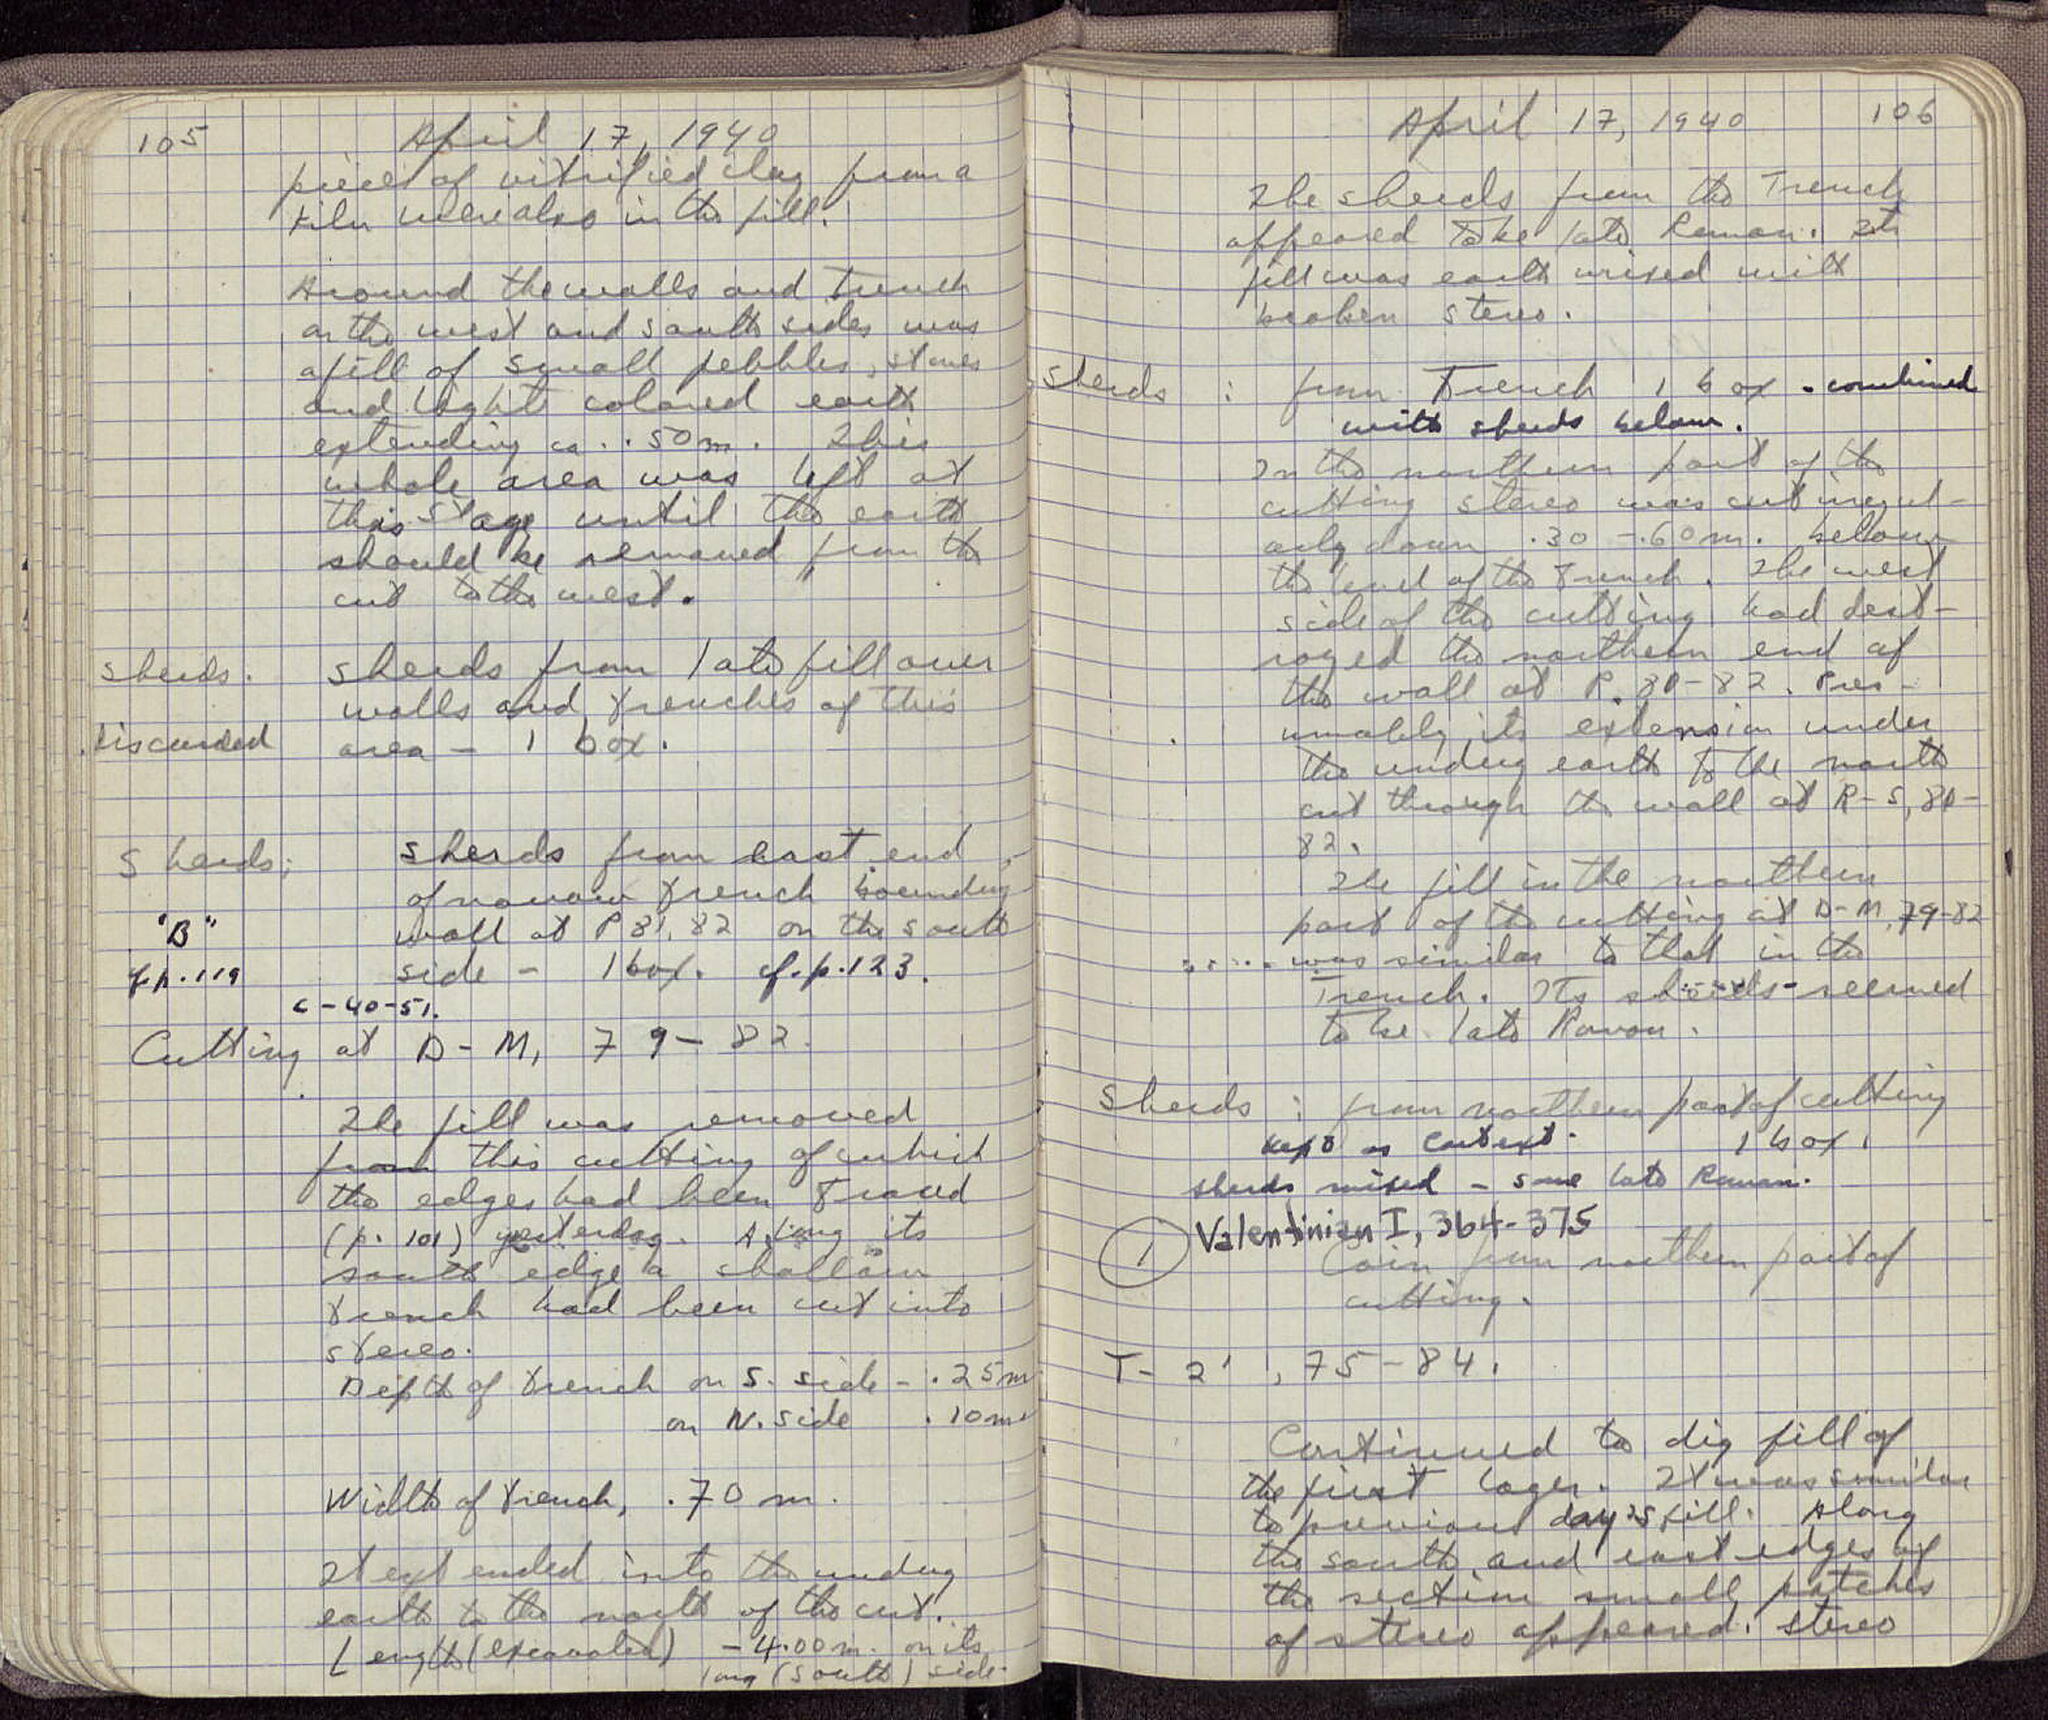 105
April 17, 1940
pieces of vitrified clay from a
kiln were also in the fill.
Around the walls and trench
on the west and south sides was
a fill of small pebbles, stones
and light colored earth
extending ca. .50m. This
whole area was left at
this stage until the earth
should be removed from the
cut to the west.
sherds. sherds from late fill over
walls and trenches of this
Discarded area - 1 box.
Sherds; sherds from east end
of narrow trench bounding
"B" wall at P 81, 82 on the south
cf p. 119 side - 1 box. cf. p. 123.
C-40-51.
Cutting at D-M, 79-82.
The fill was removed
from this cutting of which
the edges had been traced
(p. 101) yesterday. Along its
south edge a shallow
trench had been cut into
stereo.
Depth of trench on S. side - .25m
on N. side .10m.
Width of trench, .70 m.
It extended into the undug
earth to the north of the cut.
Length (excavated) - 4.00 m. on its
long (south) side.
April 17, 1940
106
The sherds from the Trench
appeared to be late Roman. Its
fill was earth mixed with
broken stereo.
Sherds : from Trench 1 box . combined
with sherds below.
In the northern part of the
cutting stereo was cut irregul-
arly down .30 - .60 m. below
the level of the trench. The west
side of the cutting had dest-
royed the northern end of
the wall at P, 80-82. Pres-
umably its extension under
the undug earth to the north
cut through the wall at R-S, 80-
82.
The fill in the northern
part of the cutting at D-M, 79-82
was similar to that in the
Trench. Its sherds seemed
to be late Roman.
Sherds : from northern part of cutting
kept as context. 1 box.
sherds mixed - some late Roman.
1 Valentinian I, 364-375
Coin from northern part of
cutting.
T - 2' , 75-84.
Continued to dig fill of
the first layer. It was similar
to previous day's fill. Along
the south and east edges of
the section small patches
of stereo appeared. Stereo